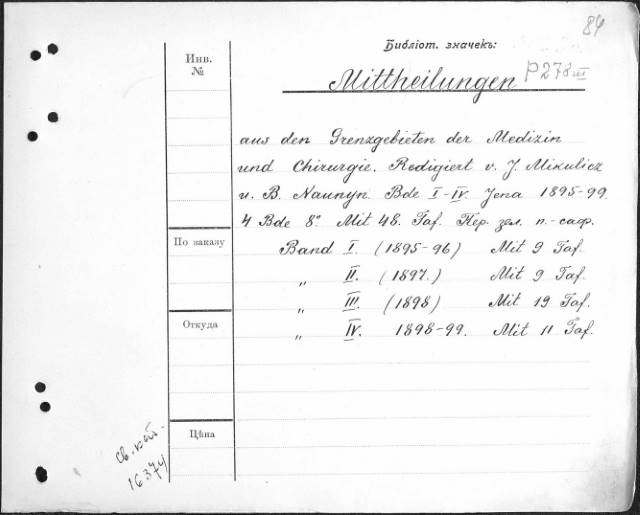 84
Библіот. значекъ:
Инв. №
Mittheilungen P278III
aus den Grenzgebieten der Medizin
und Chirurgie. Redigiert v. J. Mikulicz
u. B. Naunyn. Bde I-IV. Jena 1895-99.
4 Bde 8° Mit 48. Taf. Пер. зел. п.-саф.
По заказу
Band I. (1895-96) Mit 9 Taf.
„ II. (1897.) Mit 9 Taf.
„ III. (1898) Mit 19 Taf.
Откуда
„ IV. 1898-99. Mit 11 Taf.
Цѣна
св. кат.
16374